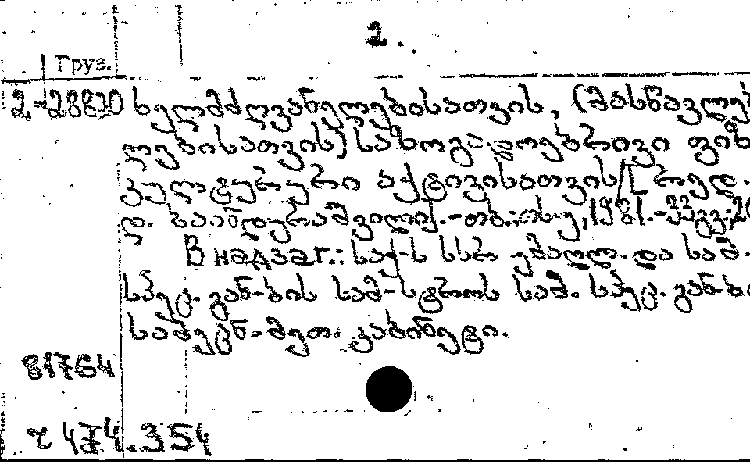 2.
Груз.
2-28820 ხელმძღვანელებისათვის, (მასწავლებ
ლებისათვის) საზოგადოებრივი ფიზ
კულტურული აქტივისათვის/[რედ.
დ. ბაინდურაშვილი].-თბ.: თსუ, 1981.-33გვ; 20
В надзаг.: საქ-ს სსრ უმაღლ. და საშ.
სპეც. გან-ბის სამ-სტროს საშ. სპეც. გან-ბი
სამეცნ.-მეთ. კაბინეტი.
81764
474.354